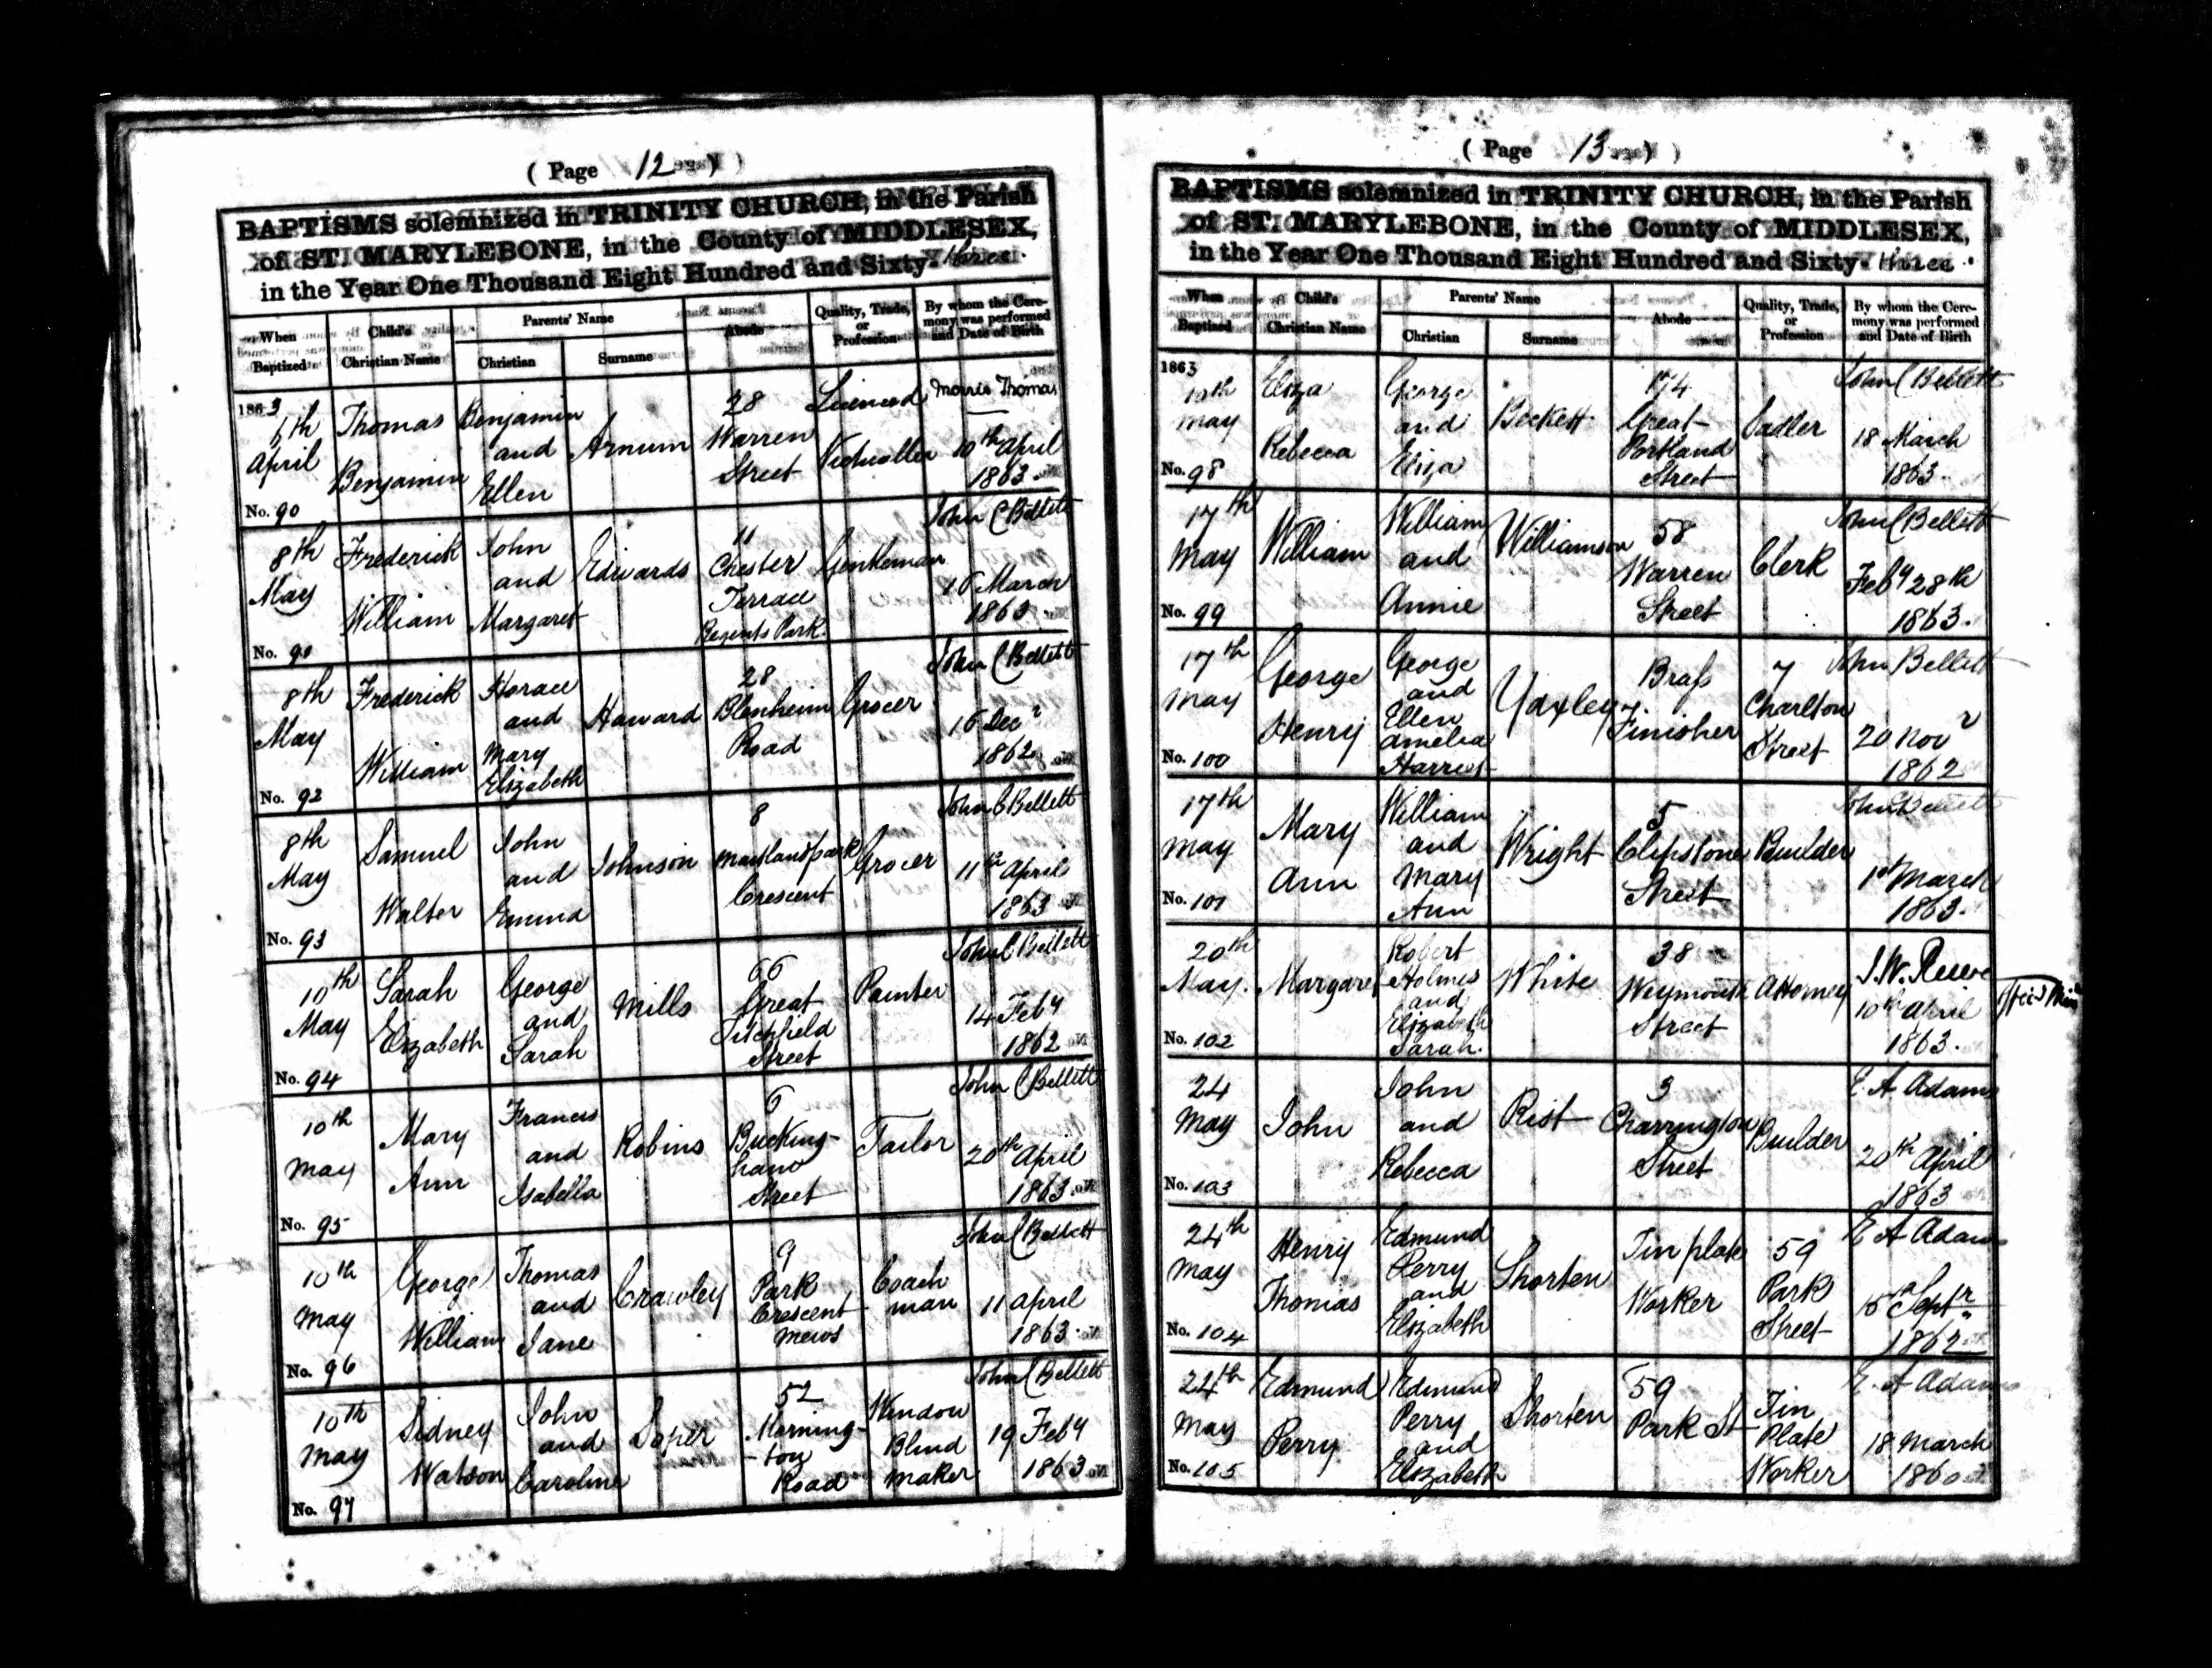 ( Page 12 )
BAPTISMS solemnized in TRINITY CHURCH, in the Parish
of ST. MARYLEBONE, in the County of MIDDLESEX,
in the Year One Thousand Eight Hundred and Sixty-three.
When Baptized
Child's Christian Name
Parents' Name
Christian
Surname
Abode
Quality, Trade, or Profession
By whom the Ceremony was performed and Date of Birth
1863
6th April
No. 90
Thomas Benjamin
Benjamin and Ellen
Arnum
28 Warren Street
Licensed Victualler
Morris Thomas
10th April 1863
8th May
No. 90
Frederick William
John and Margaret
Edwards
11 Chester Terrace Regents Park
Gentleman
John C Bellett
16 March 1863
8th May
No. 92
Frederick William
Horace and Mary Elizabeth
Haward
28 Blenheim Road
Grocer
John C Bellett
16 Decr 1862
8th May
No. 93
Samuel Walter
John and Emma
Johnson
8 Maitland park Crescent
Grocer
John C Bellett
11th April 1863
10th May
No. 94
Sarah Elizabeth
George and Sarah
Mills
66 Great Titchfield Street
Painter
John C Bellett
14 Feby 1862
10th May
No. 95
Mary Ann
Francis and Isabella
Robins
6 Bucking-ham Street
Tailor
John C Bellett
20th April 1863
10th May
No. 96
George William
Thomas and Jane
Crawley
9 Park Crescent Mews
Coach man
John C Bellett
11 April 1863
10th May
No. 97
Sidney Watson
John and Caroline
Soper
52 Morning-ton Road
Window Blind Maker
John C Bellett
19 Feby 1863
( Page 13 )
BAPTISMS solemnized in TRINITY CHURCH, in the Parish
of ST. MARYLEBONE, in the County of MIDDLESEX,
in the Year One Thousand Eight Hundred and Sixty-three.
When Baptized
Child's Christian Name
Parents' Name
Christian
Surname
Abode
Quality, Trade, or Profession
By whom the Ceremony was performed and Date of Birth
1863
10th May
No. 98
Eliza Rebecca
George and Eliza
Beckett
174 Great Portland Street
Sadler
John C Bellett
18 March 1863
17th May
No. 99
William
William and Annie
Williamson
58 Warren Street
Clerk
John C Bellett
Feby 28th 1863.
17th May
No. 100
George Henry
George and Ellen Amelia Harriet
Yaxley
Brass Finisher
7 Charlton Street
John Bellett
20 Novr 1862
17th May
No. 101
Mary Ann
William and Mary Ann
Wright
5 Clipstone Street
Builder
John C Bellett
1st March 1863.
20th May.
No. 102
Margaret
Robert Holmes and Elizabeth Sarah.
White
38 Weymouth Street
Attorney
J.W. Reeve
10th April 1863.
24 May
No. 103
John
John and Rebecca
Rist
3 Charrington Street
Builder
E. A Adams
20th April 1863
24th May
No. 104
Henry Thomas
Edmund Perry and Elizabeth
Shorten
Tin plate Worker
59 Park Street
E A Adams
15th Septr 1862
24th May
No. 105
Edmund Perry
Edmund Perry and Elizabeth
Shorten
59 Park St
Tin Plate Worker
E. A Adams
18 March 1860